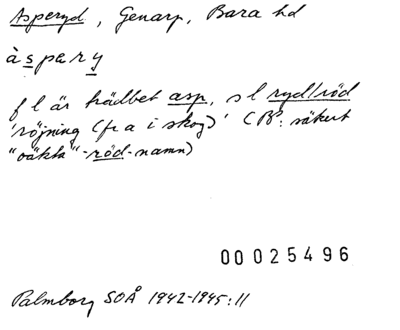 Asperyd, Genarp, Bara hd
àspæry
f l är trädbet asp, s l ryd/röd
'röjning (fr a i skog)' (B³: säkert
"oäkta"-röd-namn)
00025496
Palmborg SOÅ 1942-1945:11